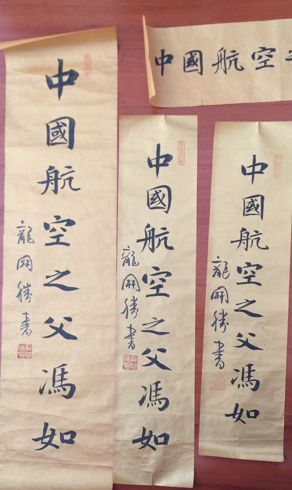 中國航空之父馮如
龍開勝書
中國航空
中國航空之父馮如
龍開勝書
中國航空之父馮如
龍開勝書